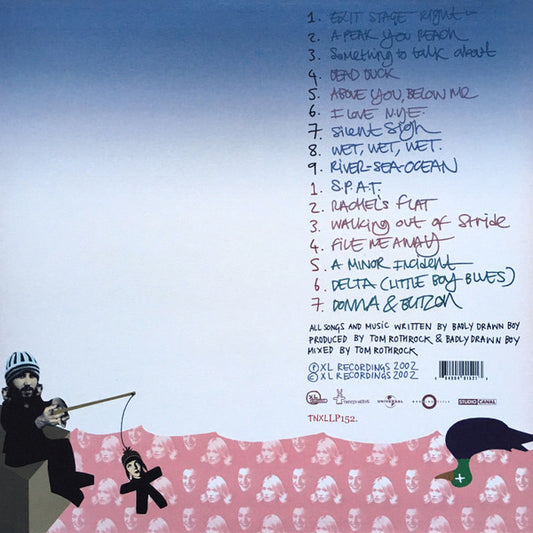 1. EXIT STAGE Right
2. A PEAK YOU REACH
3. Something to talk about
4. DEAD DUCK
5. ABOVE YOU, BELOW ME
6. I LOVE N.Y.E.
7. Silent Sigh
8. WET, WET, WET.
9. RIVER-SEA-OCEAN
1. S.P.A.T.
2. RACHEL'S FLAT
3. WALKING OUT OF Stride
4. FILE ME AWAY
5. A MINOR Incident
6. DELTA (LITTLE BOY BLUES)
7. DONNA & BLITZEN
ALL SONGS AND MUSIC WRITTEN BY BADLY DRAWN BOY
PRODUCED BY TOM ROTHROCK & BADLY DRAWN BOY
MIXED BY TOM ROTHROCK
Ⓟ XL RECORDINGS 2002
© XL RECORDINGS 2002
XL
twisted nerve
UNIVERSAL
WORKING TITLE
STUDIO CANAL
TNXLLP152.